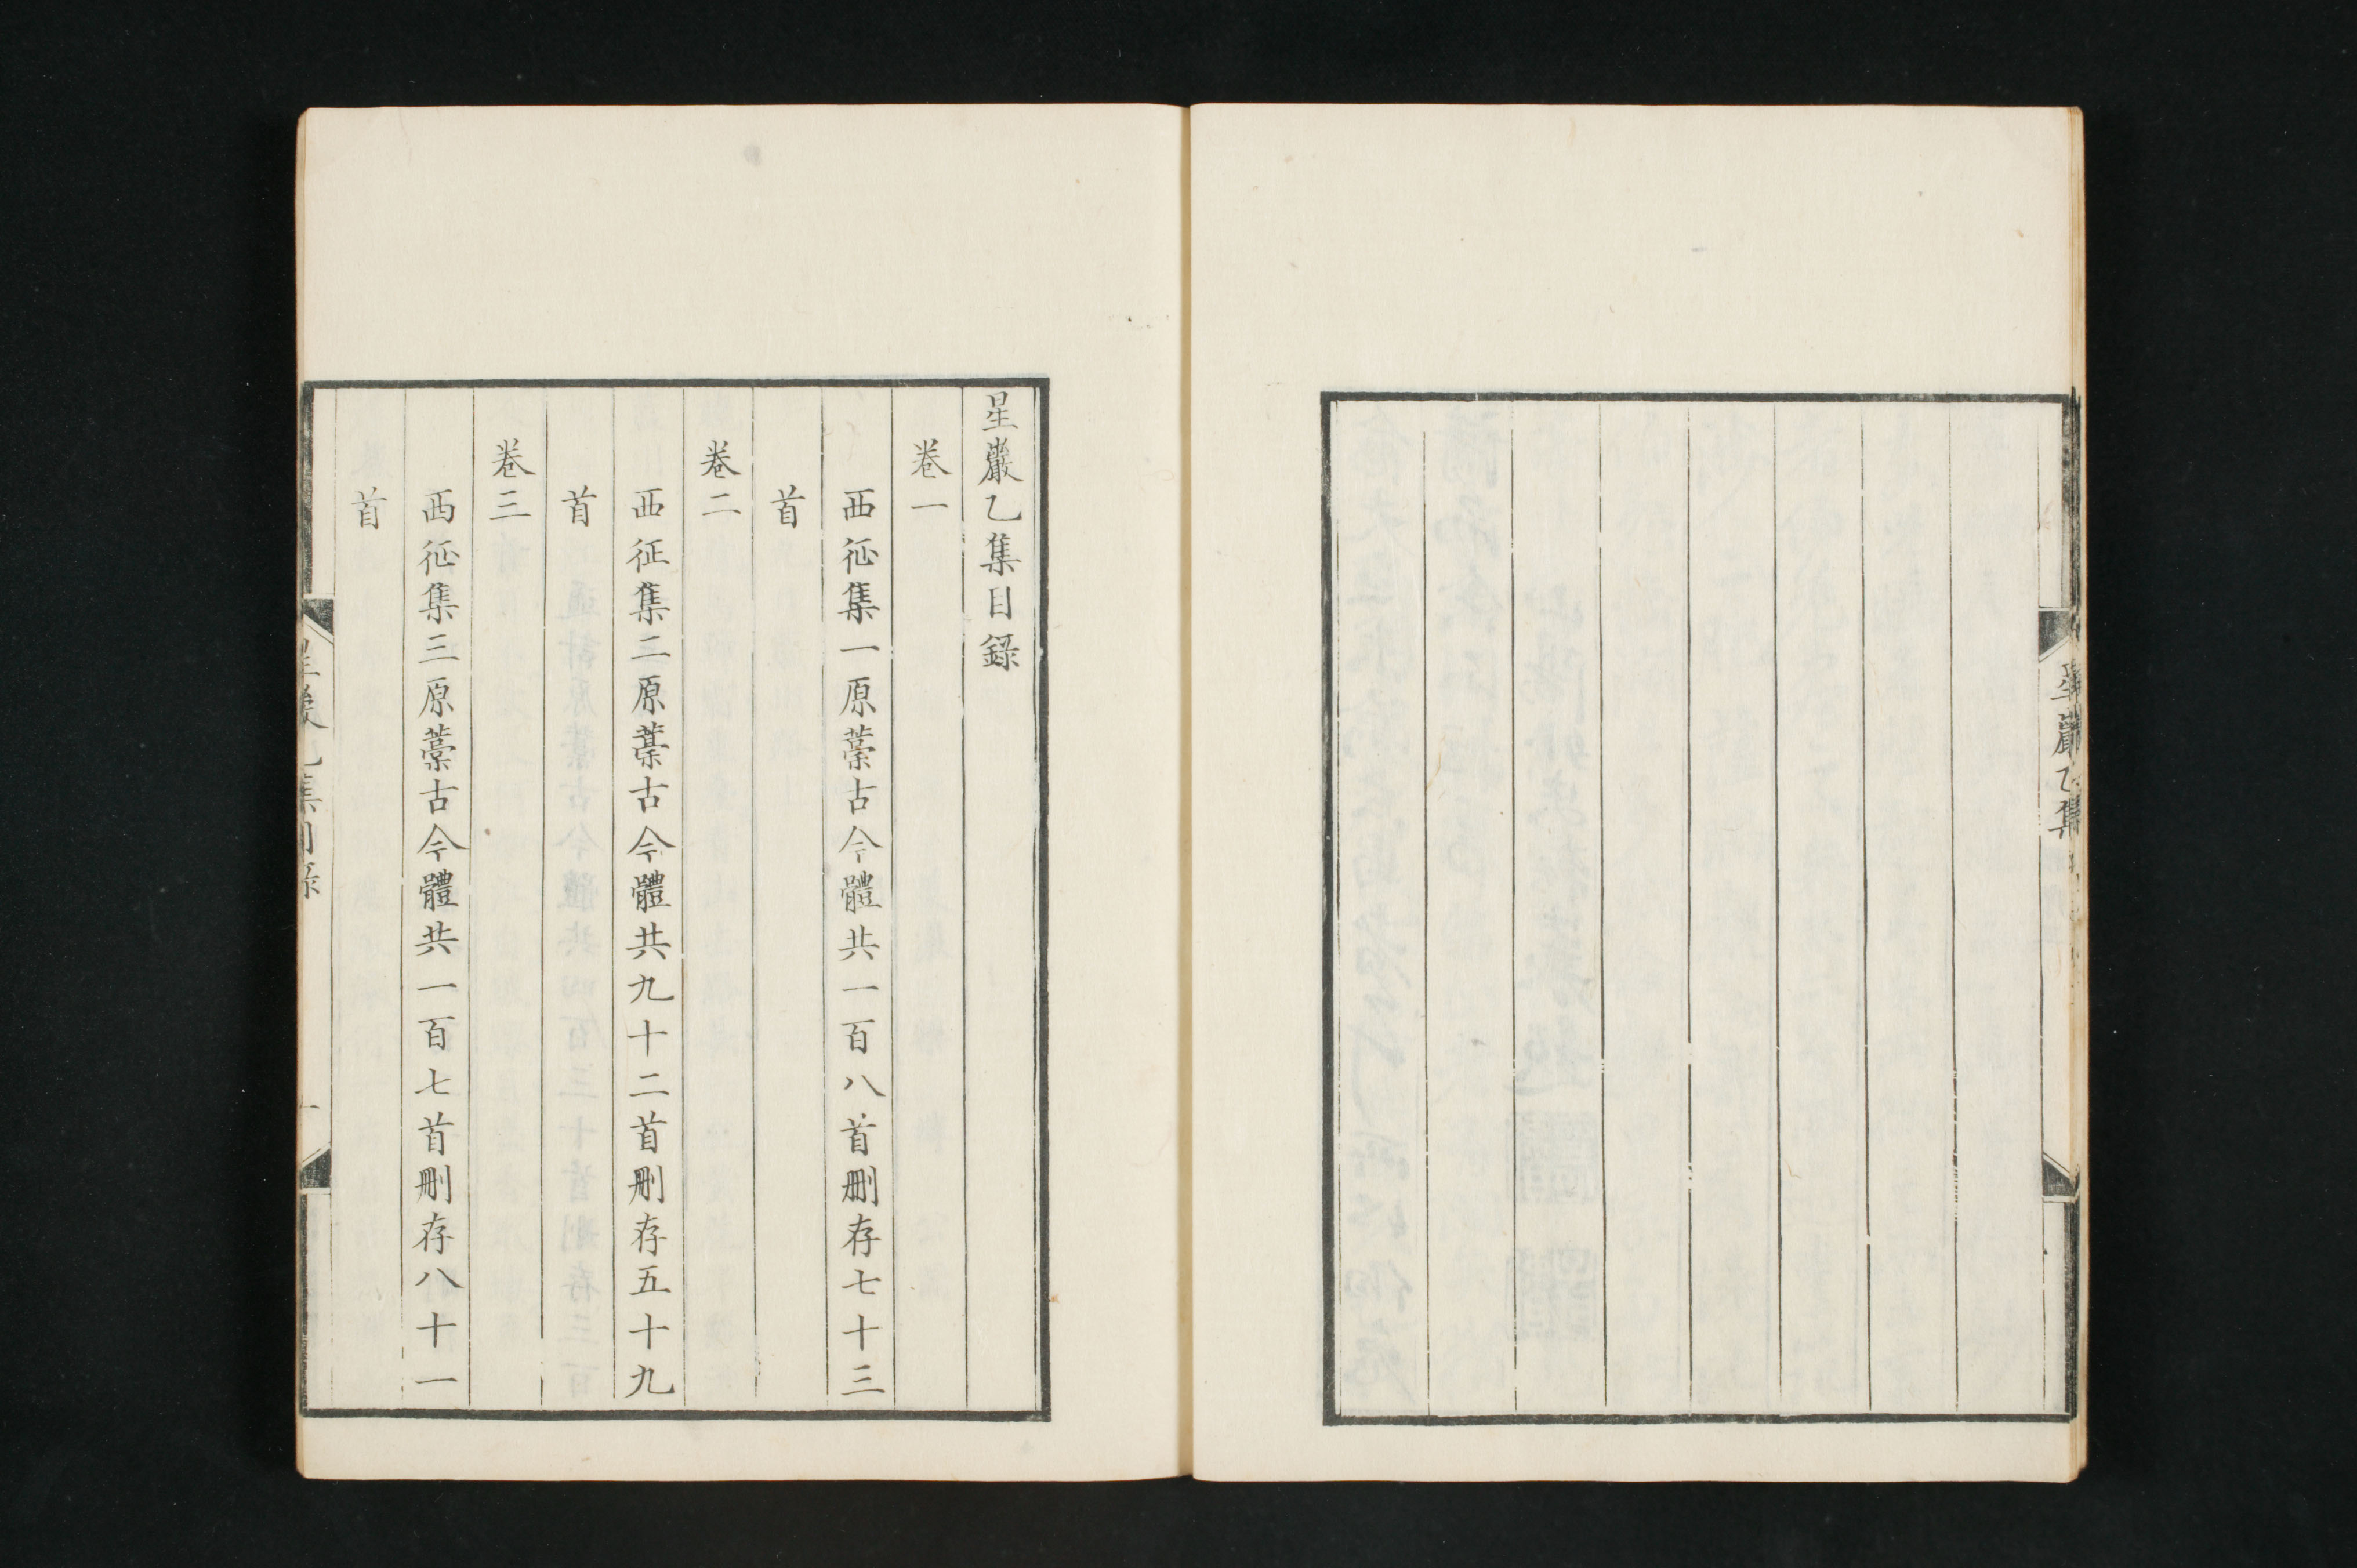 星巖乙集
星巖乙集目錄
卷一
西征集一原藁古今體共一百八首刪存七十三
首
卷二
西征集二原藁古今體共九十二首刪存五十九
首
卷三
西征集三原藁古今體共一百七首刪存八十一
首
星巖乙集目錄
一